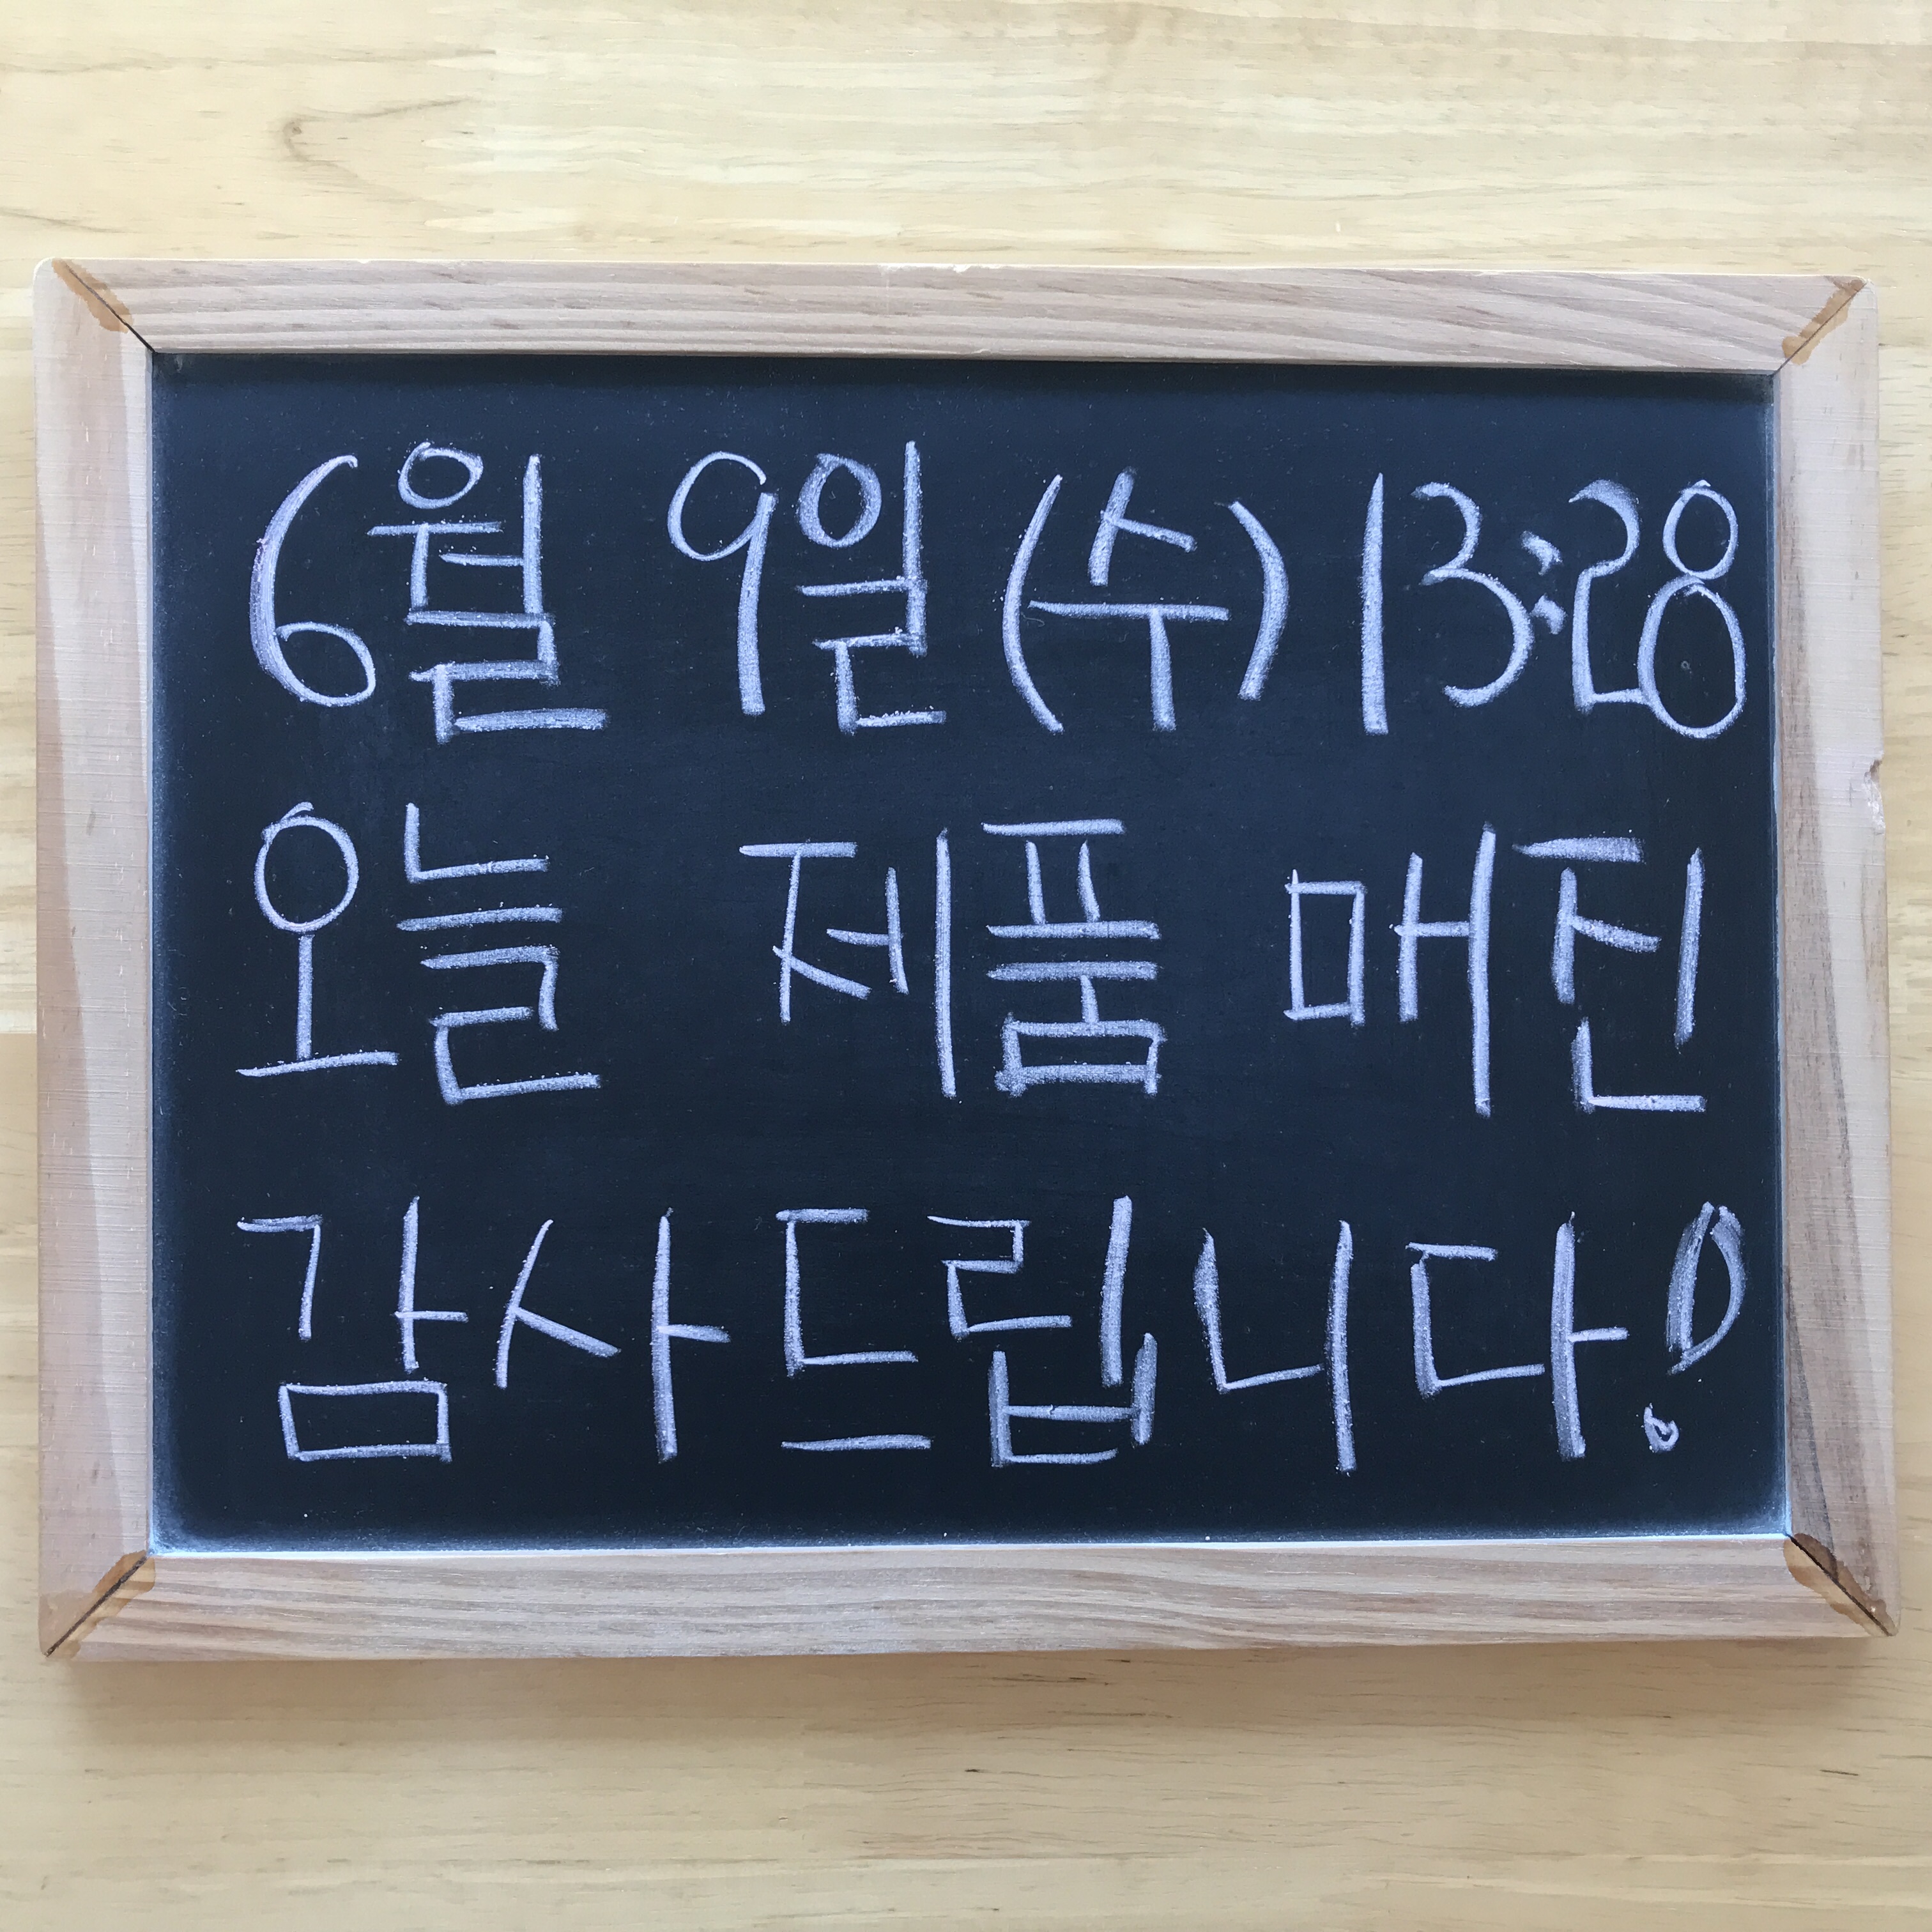 6월 9일 (수) 13:28
오늘 제품 매진
감사드립니다!